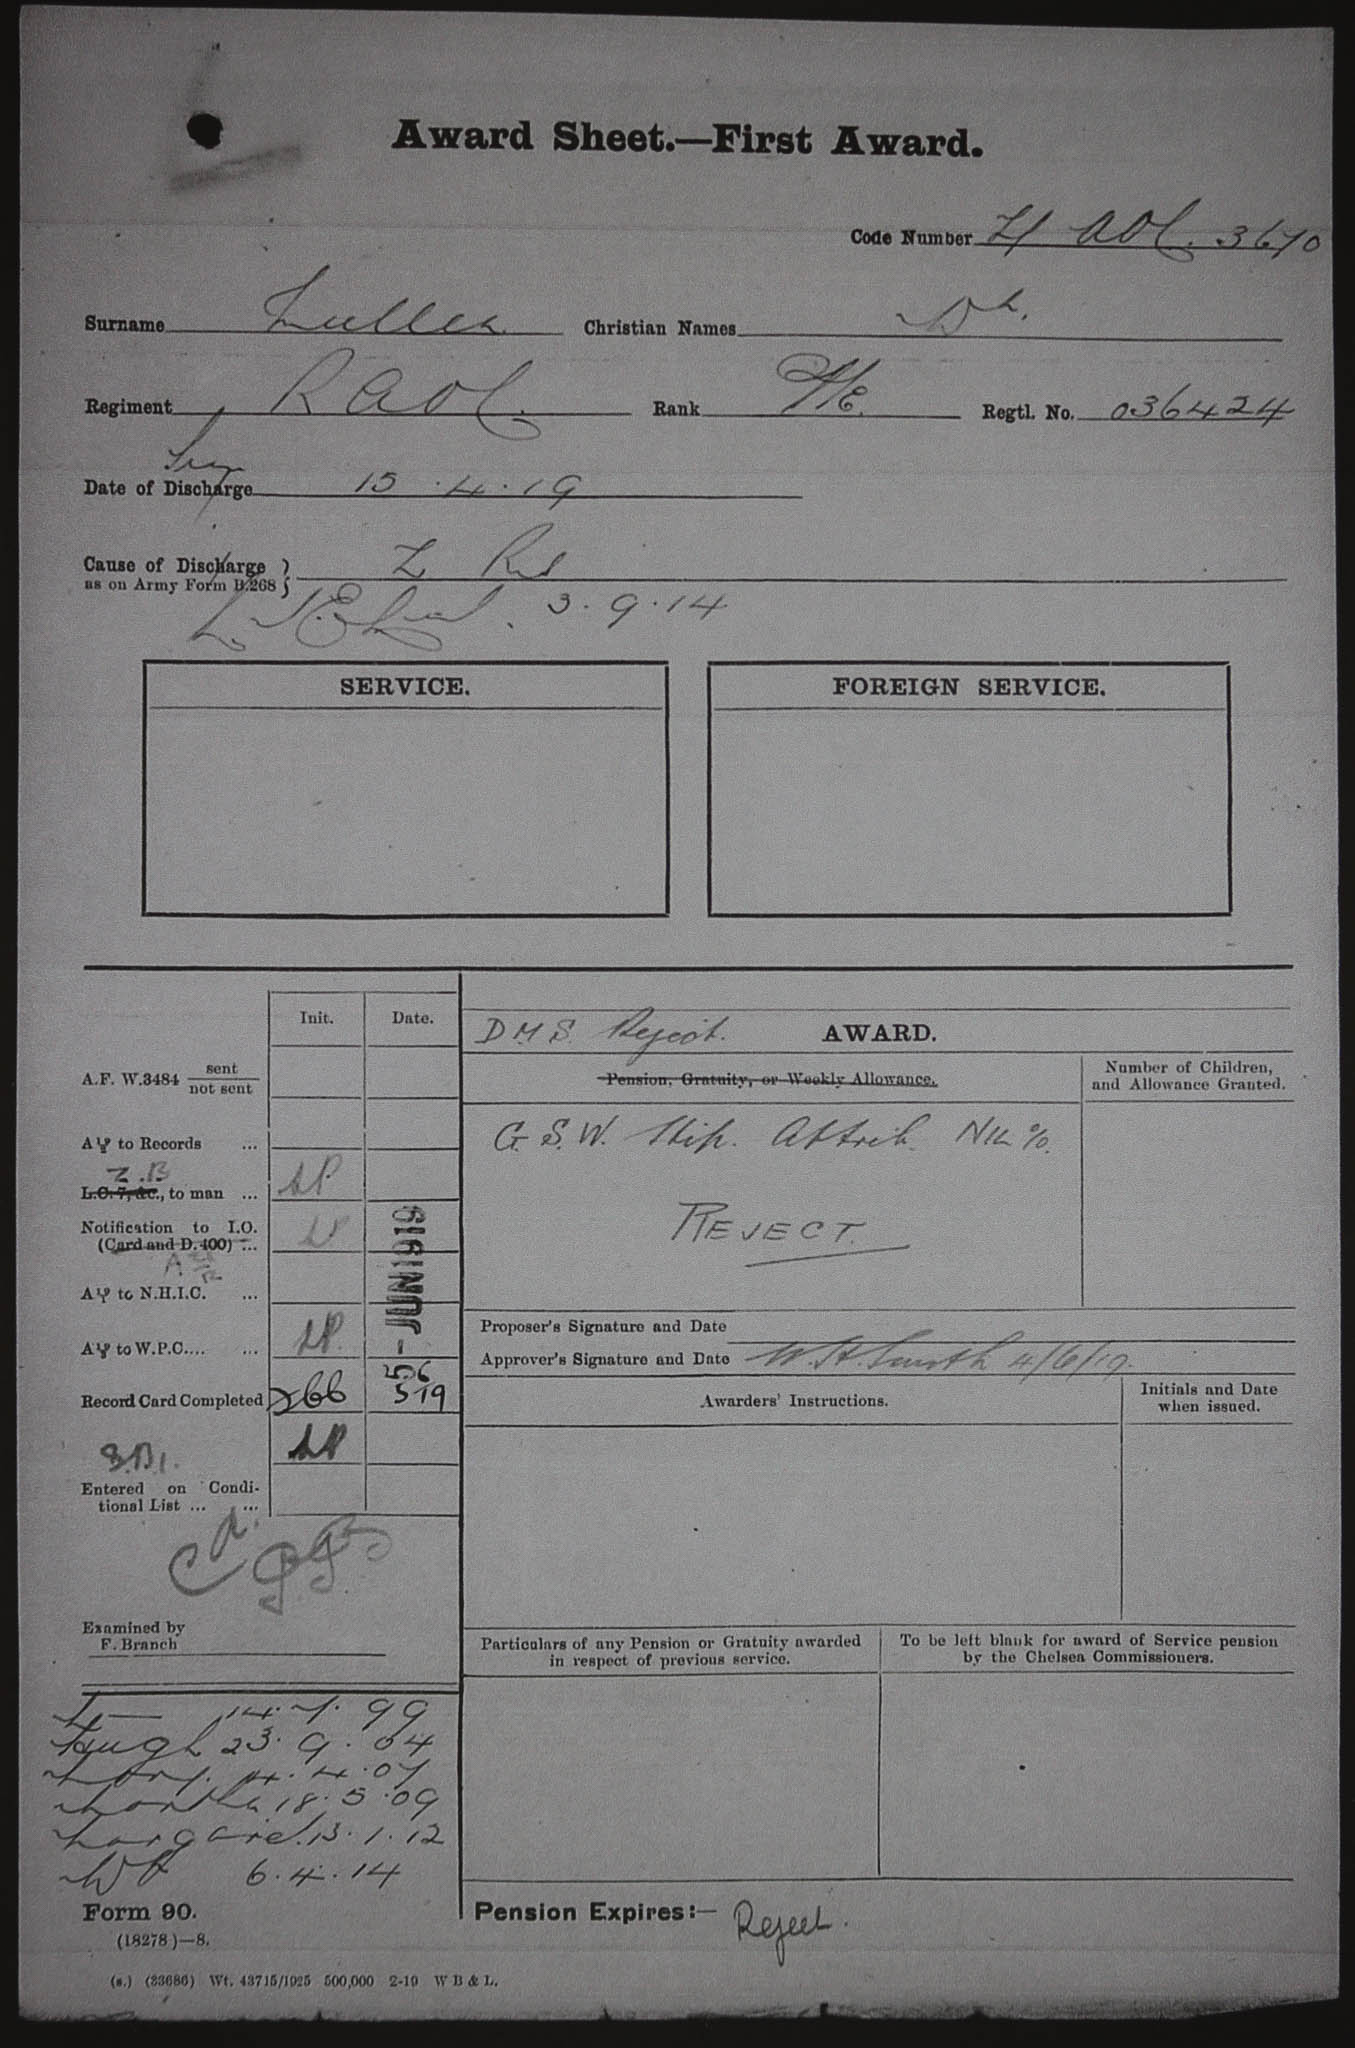 Award Sheet.—First Award.
Code Number 3670
Surname Christian Names Wm.
Regiment RAOC. Rank Regtl. No. 036424
Date of Discharge 15.4.19
Cause of Discharge } Z
as on Army Form B.268
3.9.14
SERVICE.
FOREIGN SERVICE.
Init. Date.
D.M.S. Reject. AWARD.
A.F. W.3484 sent
not sent
Pension, Gratuity, or Weekly Allowance.
Number of Children,
and Allowance Granted.
G.S.W. Hip. Attrib. Nil %.
to Records ...
Z.B
L.C. 7, &c., to man ...
REJECT.
Notification to I.O.
(Card and D.400) ...
- JUN 1919
to N.H.I.C. ...
to W.P.C.... ...
Proposer's Signature and Date
Approver's Signature and Date W. H. Smith 4/6/19.
Record Card Completed
Awarders' Instructions.
Initials and Date
when issued.
Entered on Condi-
tional List ... ...
Examined by
F. Branch
Particulars of any Pension or Gratuity awarded
in respect of previous service.
To be left blank for award of Service pension
by the Chelsea Commissioners.
14.7.99
Hugh 23.9.04
Mary. 14.4.07
Martha 18.5.09
Margaret. 13.1.12
Wm 6.4.14
Form 90.
(18278)—8.
Pension Expires:— Reject.
(s.) (33686) Wt. 43715/1925 500,000 2-19 W B & L.